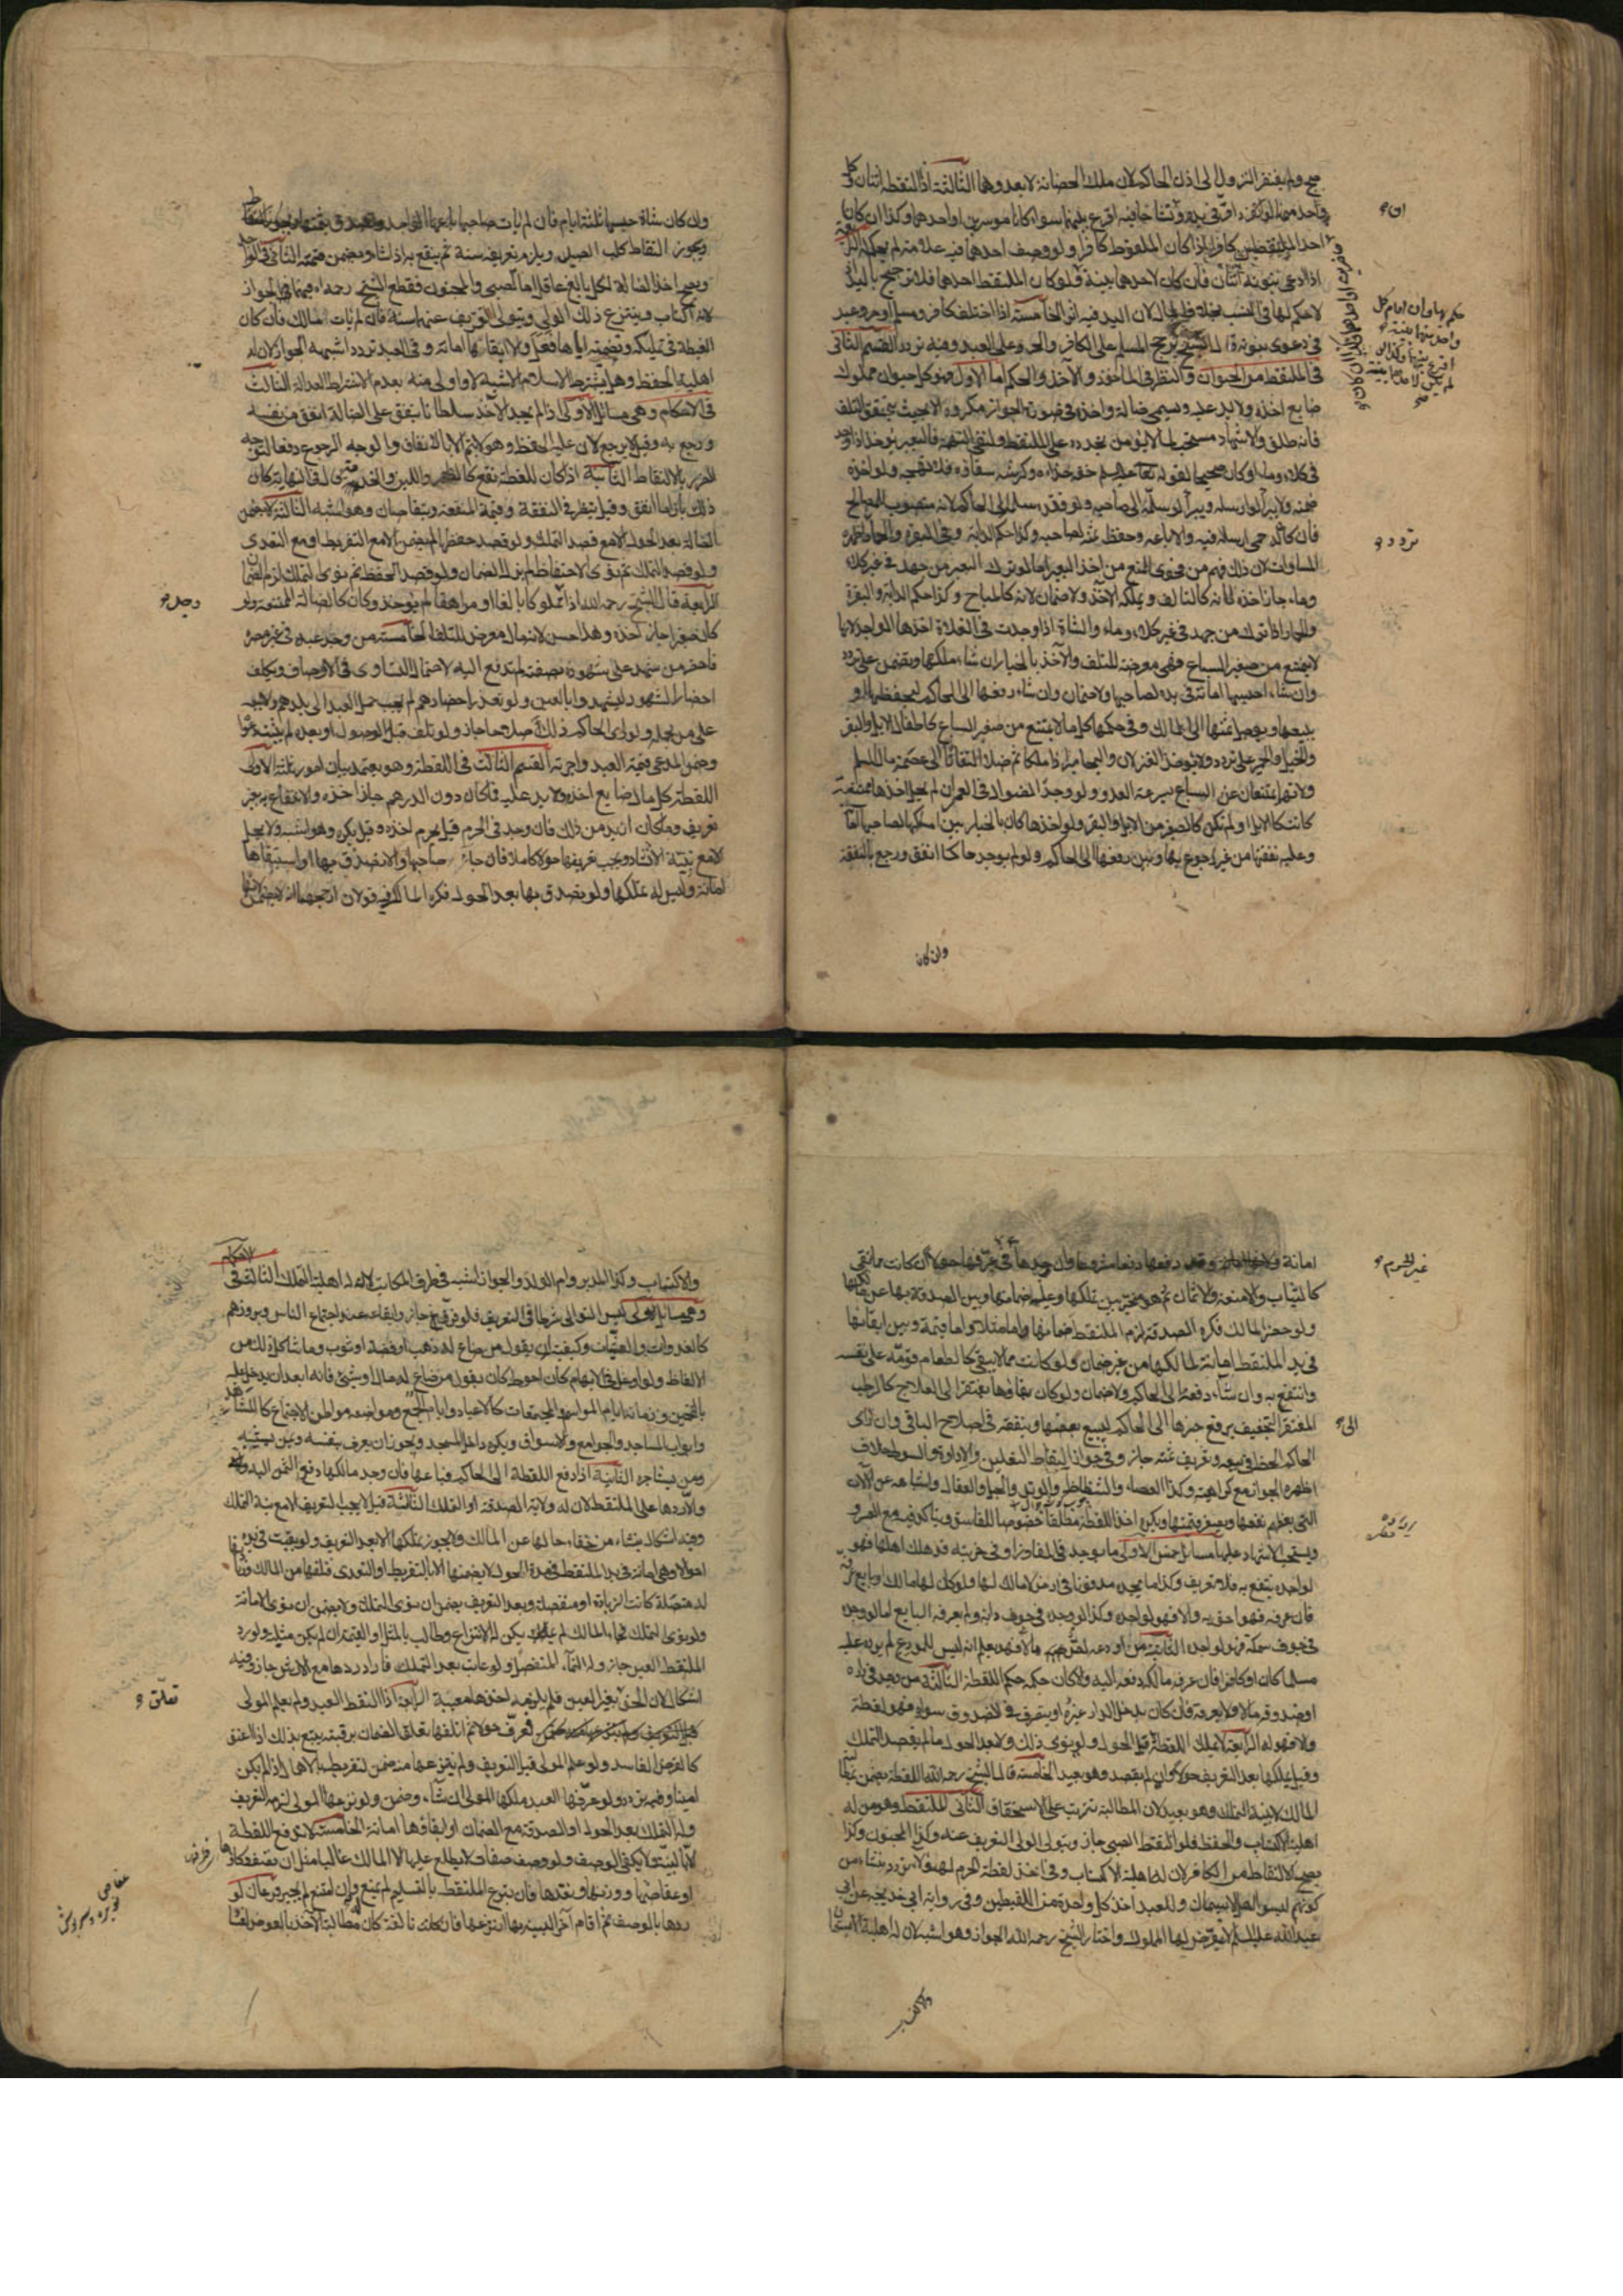 صح ولم يفتقر النزول الى اذن الحاكم لان ملك الحضانة لا يعدوهما الثالثة اذا التقطه اثنان وكل
واحد منهما لو انفرد اقر في يده وتشاحا فيه اقرع بينهما سواء كانا موسرين او احدهما وكذا ان كان
احد الملتقطين كافرا اذا كان الملقوط كافرا ولو وصف احدهما فيه علامة لم يحكم له الرابعة
اذا ادعى بنوته اثنان فان كان لاحدهما بينة ولو كان الملتقط احدهما فلا ترجيح باليد اذ
لا حكم لها في النسب بخلاف المال لان اليد فيه اثرا الخامسة اذا اختلف كافر ومسلم او حر وعبد
في دعوى بنوته قال الشيخ يرجح المسلم على الكافر والحر على العبد وفيه تردد القسم الثاني
في الملتقط من الحيوان والنظر في الماخوذ والآخذ والحكم اما الاول فهو كل حيوان مملوك
ضايع اخذ ولا يد عليه ويسمى ضالة واخذه في صورة الجواز مكروه الا بحيث يتحقق التلف
فانه طلق والاشهاد مستحب لما لا يؤمن تجدده على الملتقط ولنفي التهمة فالبعير لا يؤخذ اذا وجد
في كلاء وماء او كان صحيحا لقوله عليه السلم خفه حذاؤه وكرشه سقاؤه فلا تهجه ولو اخذه
ضمنه ولا يبرأ لو ارسله ويبرأ لو سلمه الى صاحبه ولو فقد سلمه الى الحاكم لانه منصوب للمصالح
فان كان له حمى ارسله فيه والا باعه وحفظ ثمنه لصاحبه وكذا حكم الدابة وفي البقرة والحمار اظهره
المساواة لان ذلك فهم من فحوى المنع من اخذ البعير اما لو ترك البعير من جهد في غير كلاء
وماء جاز اخذه لانه كالتالف ويملكه الآخذ ولا ضمان لانه كالمباح وكذا حكم الدابة والبقرة
والحمار اذا ترك من جهد في غير كلاء وماء والشاة اذا وجدت في الفلاة اخذها الواجد لانها
لا تمتنع من صغير السباع فهي معرضة للتلف والآخذ بالخيار ان شاء ملكها ويضمن على تردد
وان شاء احتبسها امانة في يده لصاحبها ولا ضمان وان شاء دفعها الى الحاكم ليحفظها او
يبيعها ويوصل ثمنها الى المالك وفي حكمها كل ما لا يمتنع من صغير السباع كاطفال الابل والبقر
والخيل والحمير على تردد ولا تؤخذ الغزلان واليحامير اذا ملكا ثم ضلا التفاتا الى عصمة مال المسلم
ولانهما يمتنعان عن السباع بسرعة العدو ولو وجد الضوال في العمران لم يحل اخذها ممتنعة
كانت كالابل او لم تكن كالصغير من الابل والبقر ولو اخذها كان بالخيار بين امساكها لصاحبها امانة
وعليه نفقتها من غير رجوع بها وبين دفعها الى الحاكم ولو لم يوجد حاكما انفق ورجع بالنفقة
وان كان
تردد
وان كان شاة حبسها ثلثة ايام فان لم يات صاحبها باعها الواجد وتصدق بثمنها
ويجوز التقاط كلب الصيد ويلزم تعريفه سنة ثم ينتفع به اذا شاء ويضمن قيمته الثاني في الواجد
ويصح اخذ الضالة لكل بالغ عاقل اما الصبي والمجنون فقطع الشيخ رحمه الله فيهما بالجواز
لانه اكتساب وينتزع ذلك الولي ويتولى التعريف عنهما سنة فان لم يات المالك فان كان
الغبطة في تمليكه وتضمينه اياها فعل والا ابقاها امانة وفي العبد تردد اشبهه الجواز لان له
اهلية الحفظ وهل يشترط الاسلام الاشبه لا واولى منه بعدم الاشتراط العدالة الثالث
في الاحكام وهي مسائل الاولى اذا لم يجد الآخذ سلطانا ينفق على الضالة انفق من نفسه
ورجع به وقيل لا يرجع لان عليه الحفظ وهو لا يتم الا بالانفاق والوجه الرجوع دفعا لتوجه
الضرر بالالتقاط الثانية اذا كان للقطة نفع كالظهر واللبن والخدمة قال في النهاية كان
ذلك بازاء ما انفق وقيل ينظر في النفقة وقيمة المنفعة ويتقاصان وهو اشبه الثالثة لا يضمن
الضالة بعد الحول الا مع قصد التملك ولو قصد حفظها لم يضمن الا مع التفريط او مع التعدي
ولو قصد التملك ثم نوى الاحتفاظ لم يزل الضمان ولو قصد الحفظ ثم نوى التملك لزم الضمان
الرابعة قال الشيخ رحمه الله اذا وجد مملوكا بالغا او مراهقا لم يؤخذ وكان كالضالة الممتنعة ولو
كان صغيرا جاز اخذه وهذا حسن لانه مال معرض للتلف الخامسة من وجد عبده في غير مصره
فاحضر من شهد على شهوده بصفته لم يدفع اليه لاحتمال التساوي في الاوصاف ويكلف
احضار الشهود ليشهدوا بالعين ولو تعذر احضارهم لم يجب حمل العبد الى بلدهم ولا بيعه
على من يحمله ولو راى الحاكم ذلك صلاحا جاز ولو تلف قبل الوصول او بعده لم يثبت دعواه
وضمن المدعي قيمة العبد واجرته القسم الثالث في اللقطة وهو يعتمد بيان امور ثلثة الاول
اللقطة كل مال ضايع اخذ ولا يد عليه فما كان دون الدرهم جاز اخذه والانتفاع به بغير
تعريف وما كان ازيد من ذلك فان وجد في الحرم قيل يحرم اخذه وقيل يكره وهو اشبه ولا يحل
الا مع نية الانشاد ويجب تعريفها حولا كاملا فان جاء صاحبها والا تصدق بها او استبقاها
امانة وليس له تملكها ولو تصدق بها بعد الحول فكره المالك فيه قولان ارجحهما انه لا يضمن لانها
امانة وقد دفعها دفعا مشروعا وان وجدها في غير الحرم عرفها حولا ان كانت مما يبقى
كالثياب والامتعة والاثمان ثم هو مخير بين تملكها وعليه ضمانها وبين الصدقة بها عن مالكها
ولو حضر المالك فكره الصدقة لزم الملتقط ضمانها اما مثلا واما قيمة وبين ابقائها
في يد الملتقط امانة لمالكها من غير ضمان ولو كانت مما لا يبقى كالطعام قومه على نفسه
وانتفع به وان شاء دفعه الى الحاكم ولا ضمان ولو كان بقاؤها يفتقر الى العلاج كالرطب
المفتقر الى التجفيف يرفع خبرها الى الحاكم ليبيع بعضها وينفقه في اصلاح الباقي وان راى
الحاكم الحظ في بيعه وتعريف ثمنه جاز وفي جواز التقاط النعلين والاداوة والسوط خلاف
اظهره الجواز مع كراهية وكذا العصا والشظاظ والوتد والحبل والعقال واشباهه من الآلات
التي يعظم نفعها ويصغر قيمتها ويكره اخذ اللقطة مطلقا خصوصا للفاسق ويتاكد فيه مع العسر
ويستحب الاشهاد عليها مسائل خمس الاولى ما يوجد في المفاوز او في خربة قد هلك اهلها فهو
لواجده ينتفع به بلا تعريف وكذا ما يجده مدفونا في ارض لا مالك لها ولو كان لها مالك او بايع عرفه
فان عرفه فهو احق به والا فهو لواجده وكذا لو وجده في جوف دابة ولم يعرفه البايع اما لو وجده
في جوف سمكة فهو لواجده الثانية من اودعه لص مالا وهو يعلم انه ليس للمودع لم يرده عليه
مسلما كان او كافرا فان عرف مالكه دفعه اليه والا كان حكمه حكم اللقطة الثالثة من وجد في داره
او صندوقه مالا ولا يعرفه فان كان يدخل الدار غيره او يتصرف في الصندوق سواه فهو لقطة
والا فهو له الرابعة لا يملك اللقطة قبل الحول ولو نوى ذلك ولا بعد الحول ما لم يقصد التملك
وقيل يملكها بعد التعريف حولا وان لم يقصد وهو بعيد الخامسة قال الشيخ رحمه الله اللقطة يضمن بمطالبة
المالك لا بنية التملك وهو بعيد لان المطالبة تترتب على الاستحقاق الثاني الملتقط وهو من له
اهلية الاكتساب والحفظ فلو التقط الصبي جاز ويتولى الولي التعريف عنه وكذا المجنون وكذا
يصح الالتقاط من الكافر لان له اهلية الاكتساب وفي اخذ لقطة الحرم لهؤلاء تردد ينشاء من
كونهم ليسوا اهلا للاستيمان وللعبد اخذ كل واحدة من اللقيطين وفي رواية ابي خديجة عن ابي
عبد الله عليه السلم لا يعرض لها المملوك واختار الشيخ رحمه الله الجواز وهو اشبه لان له اهلية الاستيمان
غير الحرم
الى
والاكتساب وكذا المدبر وام الولد والجواز اشبه في طرف المكاتب لان له اهلية التملك الثالث في الاحكام
وهي مسائل الاولى ليس التوالي شرطا في التعريف فلو فرق جاز وايقاعه عند اجتماع الناس وبروزهم
كالغدوات والعشيات وكيفيته ان يقول من ضاع له ذهب او فضة او ثوب وما شاكل ذلك من
الالفاظ ولو اوغل في الابهام كان احوط كان يقول من ضاع له مال او شيء فانه ابعد ان يدخل عليه
بالتخمين وزمانه ايام المواسم والمجتمعات كالاعياد وايام الجمع ومواضعه مواطن الاجتماع كالمشاهد
وابواب المساجد والجوامع والاسواق ويكره داخل المسجد ويجوز ان يعرف بنفسه وبمن يستنيبه
ومن يستاجره الثانية اذا دفع اللقطة الى الحاكم فباعها فان وجد مالكها دفع الثمن اليه
والا ردها على الملتقط لان له ولاية الصدقة او التملك الثالثة قيل لا يجب التعريف الا مع نية التملك
وفيه اشكال ينشاء من خفاء حالها عن المالك ولا يجوز تملكها الا بعد التعريف ولو بقيت في يده
احوالا وهي امانة في يد الملتقط في مدة الحول لا يضمنها الا بالتفريط او التعدي فتلفها من المالك ونماؤها
له متصلة كانت الزيادة او منفصلة وبعد التعريف يضمن ان نوى التملك ولا يضمن ان نوى الامانة
ولو نوى التملك فجاء المالك لم يكن له الانتزاع وطالب بالمثل او القيمة ان لم يكن مثليا ولو رد
الملتقط العين جاز وله النماء المنفصل ولو عابت بعد التملك فاراد ردها مع الارش جاز وفيه
اشكال لان الحق تعلق بغير العين فلم يلزمه اخذها معيبة الرابعة اذا التقط العبد ولم يعلم المولى
فعرف حولا ثم اتلفها تعلق الضمان برقبته يتبع بذلك اذا اعتق
كالقرض الفاسد ولو علم المولى قبل التعريف ولم ينزعها منه ضمن لتفريطه بالاهمال اذا لم يكن
امينا وفيه تردد ولو عرفها العبد ملكها المولى ان شاء وضمن ولو نزعها المولى لزمه التعريف
وله التملك بعد الحول او الصدقة مع الضمان او ابقاؤها امانة الخامسة لا تدفع اللقطة
الا بالبينة ولا يكفي الوصف ولو وصف صفات لا يطلع عليها الا المالك غالبا مثل ان يصف وكاءها
او عفاصها ووزنها ونقدها فان تبرع الملتقط بالتسليم لم يمنع وان امتنع لم يجبر فرعان لو
ردها بالوصف ثم اقام آخر البينة بها انتزعها فان كانت تالفة كان له مطالبة الآخذ بالعوض لفساد
تعلق